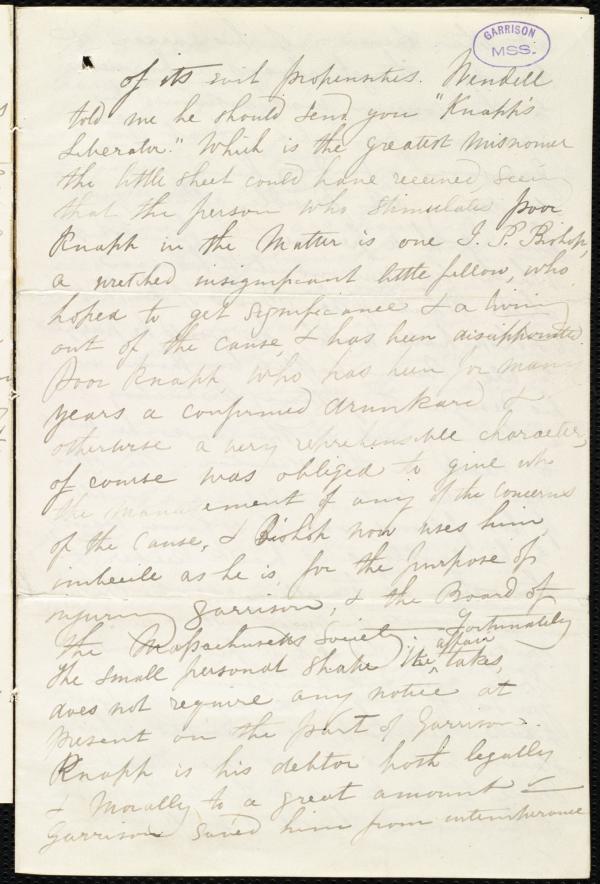 GARRISON
MSS.
of its evil propensities. Wendell
told me he should send you "Knapp's
Liberator." Which is the greatest misnomer
the little sheet could have received, seein
that the person who stimulates poor
Knapp in the matter is one J. P. Bishop,
a wretched insignificant little fellow, who
hoped to get significance & a living
out of the cause, & has been disappointed.
Poor Knapp, who has been for many
years a confirmed drunkard &
otherwise a very reprehensible character,
of course was obliged to give up
the management of any of the concerns
of the cause, & Bishop now uses him
imbecile as he is, for the purpose of
injuring Garrison, & the Board of
the Massachusetts Society. Fortunately
the small personal shape the affair takes,
does not require any notice at
present on the part of Garrison.
Knapp is his debtor both legally
& morally to a great amount –
Garrison saved him from intemperance